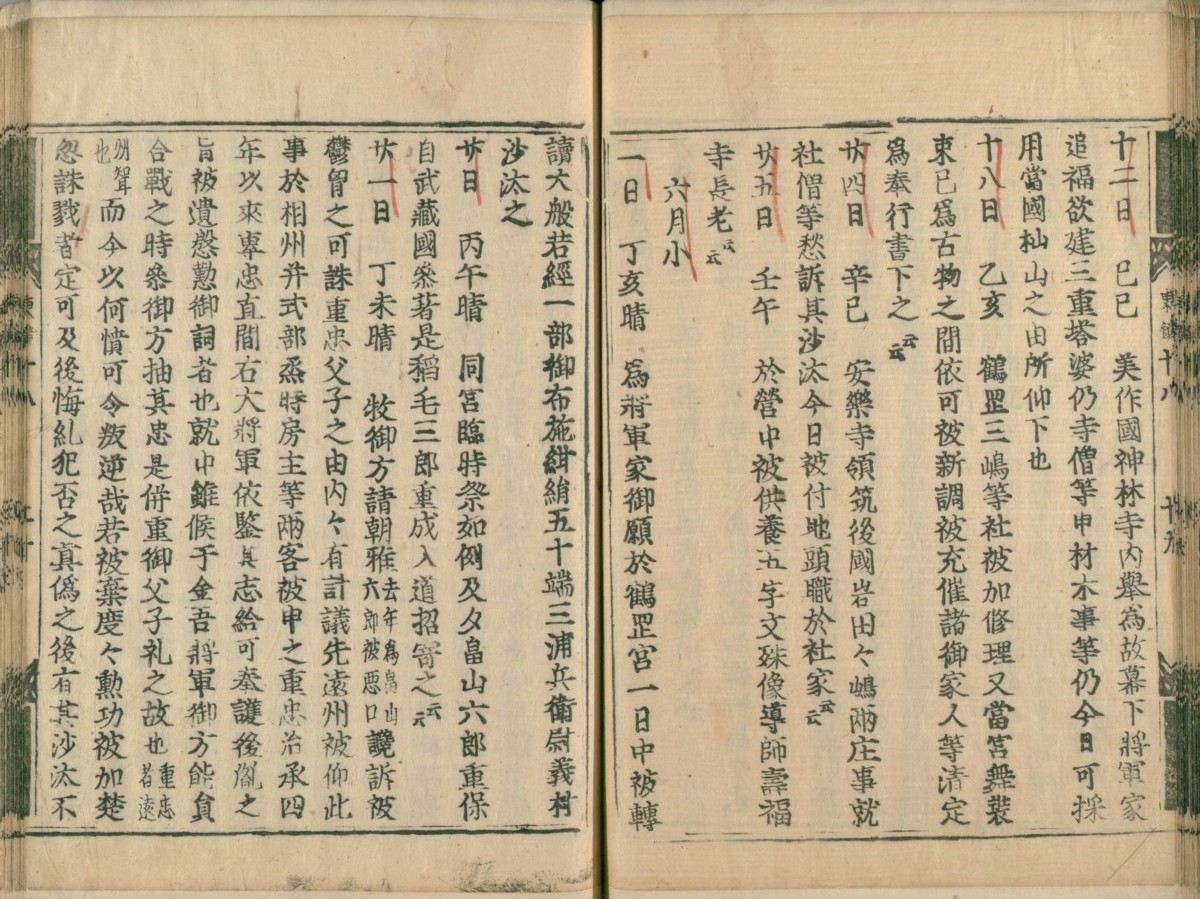 十二日　己巳　美作國神林寺内舉為故幕下將軍家
追福欲建三重塔婆仍寺僧等申材木事等仍今日可採
用當國杣山之由所仰下也
十八日　乙亥　鶴罡三嶋等社被加修理又當宮舞裝
束已爲古物之間依可被新調被充催諸御家人等清定
爲奉行書下之云云
廿四日　辛巳　安樂寺領筑後國岩田々嶋兩庄事就
社僧等愁訴其沙汰今日被付地頭職於社家云云
廿五日　壬午　於營中被供養五字文殊像導師壽福
寺長老云云
六月小
一日　丁亥晴　爲將軍家御願於鶴罡宮一日中被轉
東鑑十八　十九
讀大般若經一部御布施紺絹五十端三浦兵衛尉義村
沙汰之
廿日　丙午晴　同宮臨時祭如例及夕畠山六郎重保
自武藏國參著是稻毛三郎重成入道招寄之云云
廿一日　丁未晴　牧御方請朝雅去年爲畠山六郎被惡口讒訴被
鬱胷之可誅重忠父子之由内々有計議先遠州被仰此
事於相州幷式部烝時房主等兩客被申之重忠治承四
年以來專忠直間右大將軍依鑒其志給可奉護後胤之
旨被遺慇懃御詞者也就中雖候于金吾將軍御方能員
合戰之時參御方抽其忠是併重御父子礼之故也重忠者遠
州聟也而今以何憤可令叛逆哉若被棄度々勲功被加楚
忽誅戮者定可及後悔糺犯否之真僞之後有其沙汰不